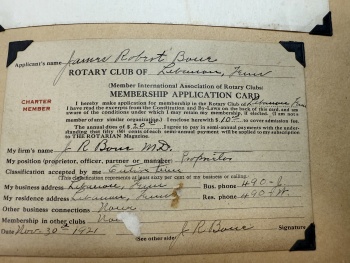 Applicant's name James Robert Bone
ROTARY CLUB OF Lebanon, Tenn
(Member International Association of Rotary Clubs)
MEMBERSHIP APPLICATION CARD
CHARTER
MEMBER
I hereby make application for membership in the Rotary Club of Lebanon Tenn
I have read the excerpts from the Constitution and By-Laws on the back of this card, and am
aware of the conditions under which I may resume my membership, if elected. (I am not a
member of any similar organization.) I enclose herewith $10.00 to cover admission fee.
The annual dues of $20.00 I agree to pay in semi-annual payments with the under-
standing that fifty (50) cents of each semi-annual payment will be applied to subscription
to THE ROTARIAN Magazine.
My firm's name J R Bone M.D.
My position (proprietor, officer, partner or manager) Proprietor
Classification accepted by me
(This classification represents at least sixty per cent of my business or calling.)
My business address Lebanon, Tenn Bus. phone 490-J
My residence address Lebanon, Tenn Res. phone 490-W
Other business connections None
Membership in other clubs None
Date Nov. 30th 1921 J R Bone Signature
(See other side)